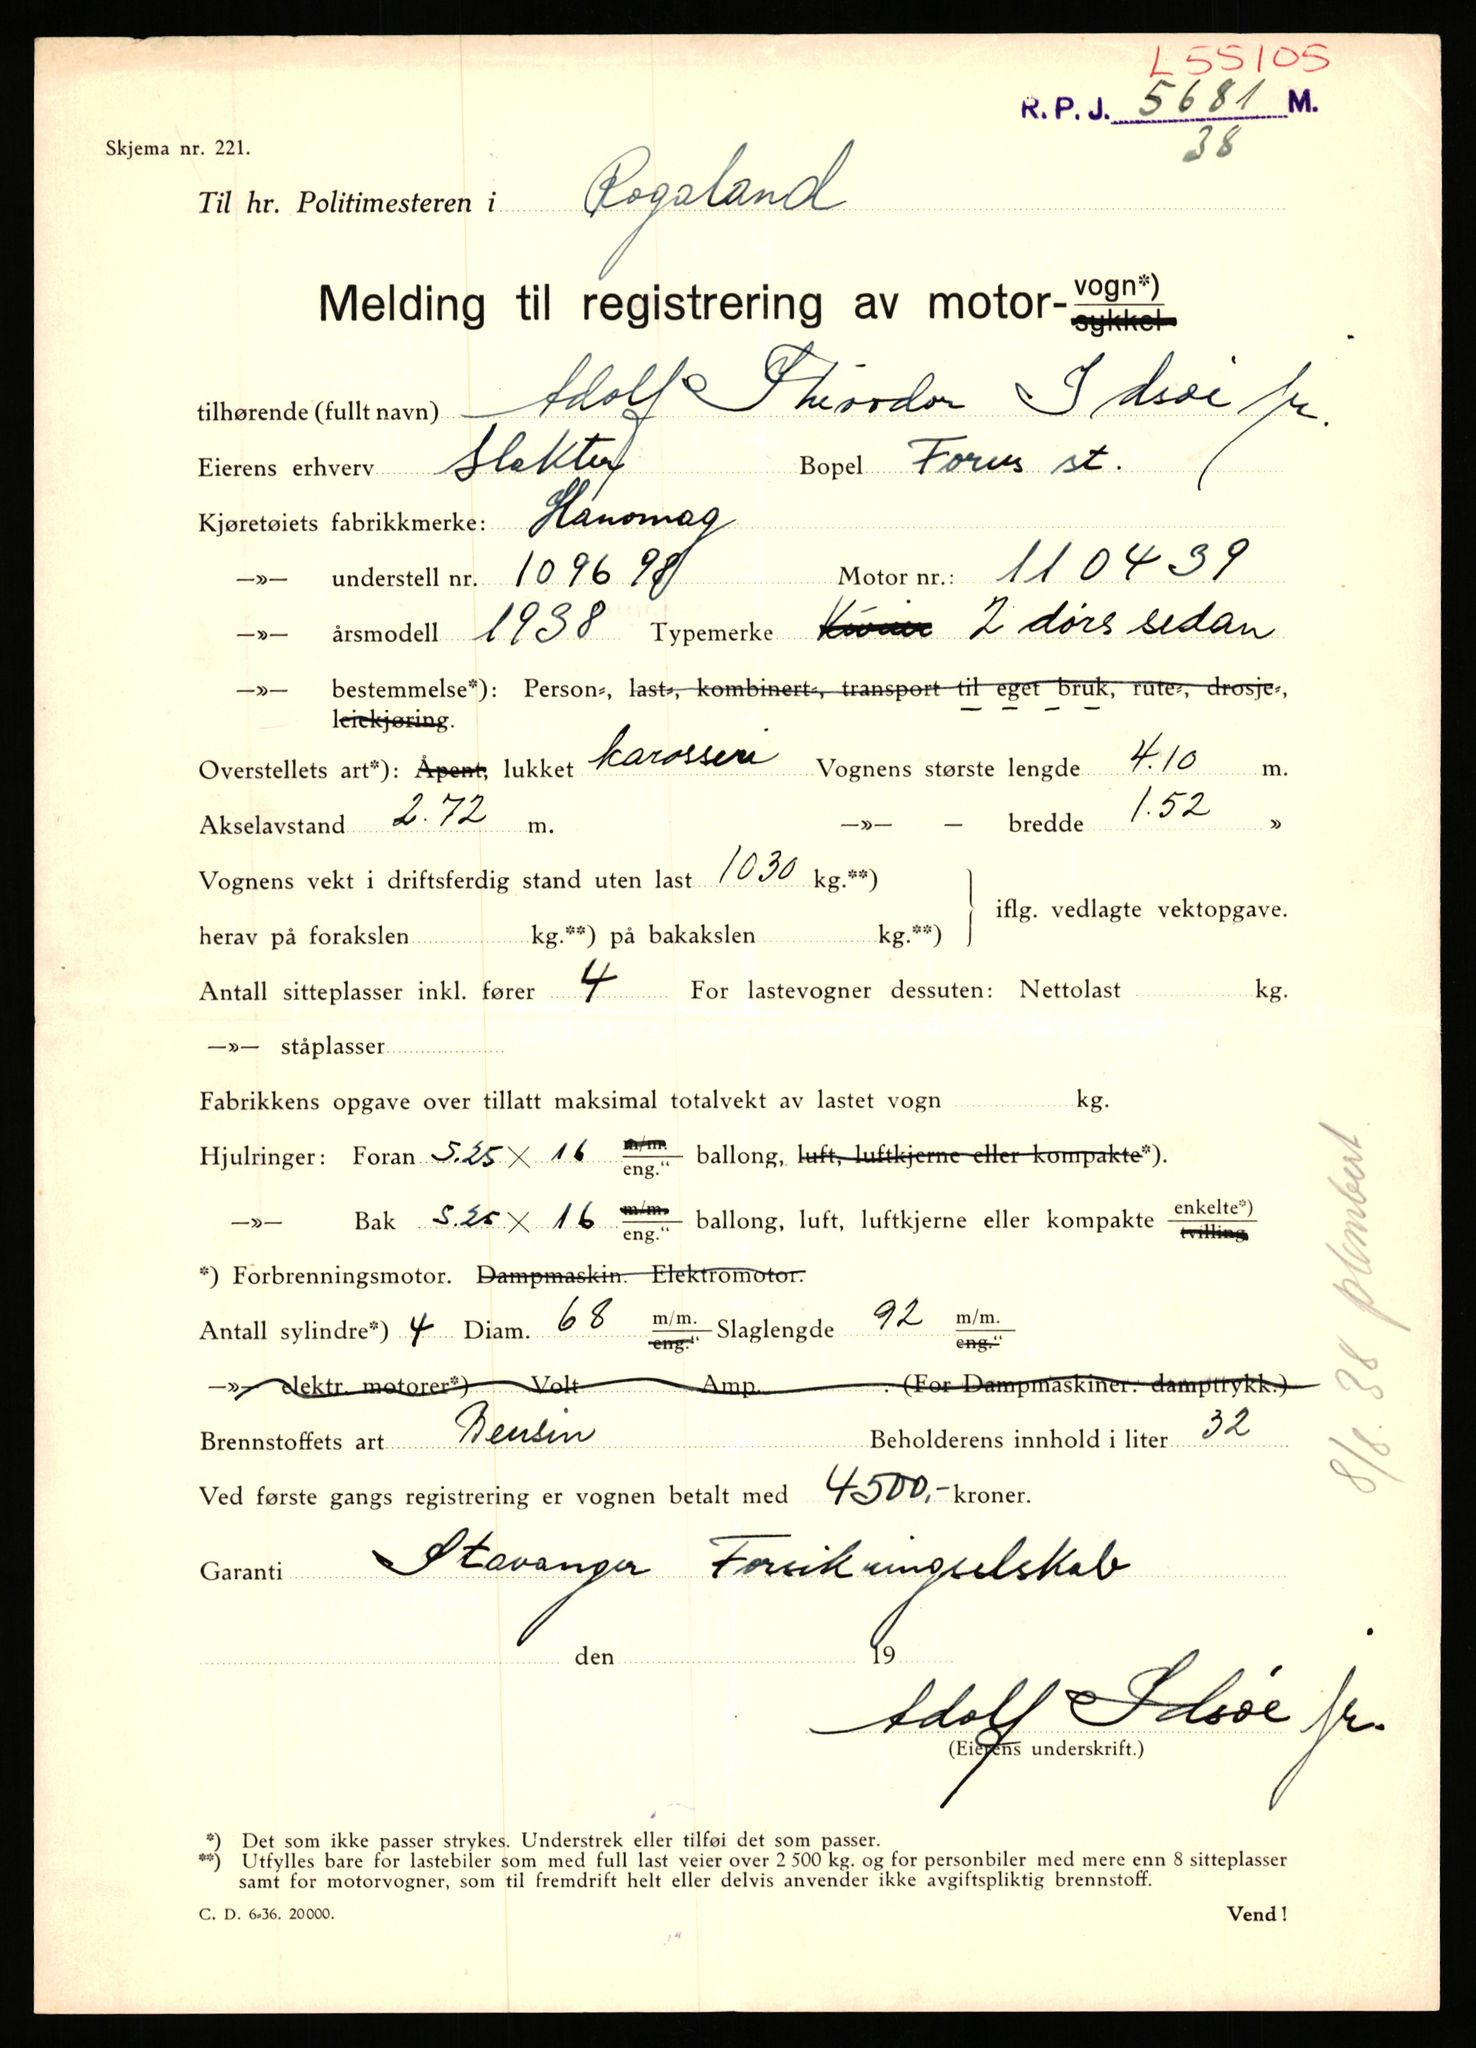 L55105
R. P. J. 5681 M.
38
Skjema nr. 221.
Til hr. Politimesteren i Rogaland
Melding til registrering av motor- vogn*)
sykkel
tilhørende (fullt navn) Adolf Theodor Idsøe jr.
Eierens erhverv Slakter Bopel Forus st.
Kjøretøiets fabrikkmerke: Hanomag
—»— understell nr. 109698 Motor nr.: 110439
—»— årsmodell 1938 Typemerke 2 dørs sedan
—»— bestemmelse*): Person-, last-, kombinert-, transport til eget bruk, rute-, drosje-,
leiekjøring.
Overstellets art*): Åpent, lukket karosseri Vognens største lengde 4.10 m.
Akselavstand 2.72 m. —»— — bredde 1.52 »
Vognens vekt i driftsferdig stand uten last 1030 kg.**)
iflg. vedlagte vektopgave.
herav på forakslen kg.**) på bakakslen kg.**)
Antall sitteplasser inkl. fører 4 For lastevogner dessuten: Nettolast kg.
—»— ståplasser
Fabrikkens opgave over tillatt maksimal totalvekt av lastet vogn kg.
Hjulringer: Foran 5.25 × 16 m/m. eng." ballong, luft, luftkjerne eller kompakte*).
—»— Bak 5.25 × 16 m/m. eng." ballong, luft, luftkjerne eller kompakte enkelte*) tvilling
*) Forbrenningsmotor. Dampmaskin. Elektromotor.
Antall sylindre*) 4 Diam. 68 m/m. eng." Slaglengde 92 m/m. eng."
—»— elektr. motorer*) Volt Amp. . (For Dampmaskiner: damptrykk.)
Brennstoffets art Bensin Beholderens innhold i liter 32
Ved første gangs registrering er vognen betalt med 4500,- kroner.
Garanti Stavanger Forsikringselskab
den 19
Adolf Idsøe jr.
(Eierens underskrift.)
*) Det som ikke passer strykes. Understrek eller tilføi det som passer.
**) Utfylles bare for lastebiler som med full last veier over 2 500 kg. og for personbiler med mere enn 8 sitteplasser
samt for motorvogner, som til fremdrift helt eller delvis anvender ikke avgiftspliktig brennstoff.
C. D. 6-36. 20000. Vend!
8/8. 38 plombert